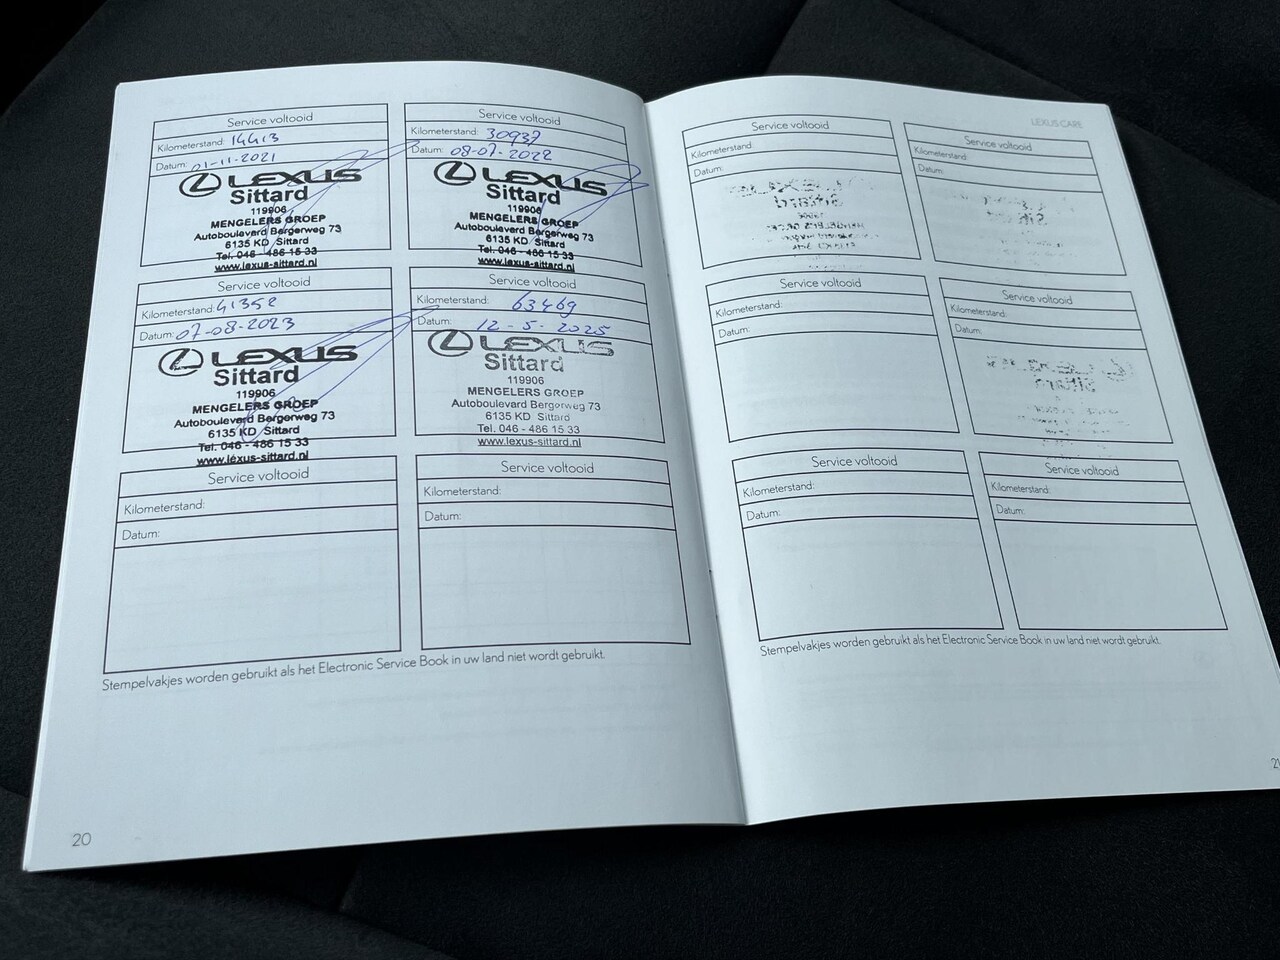 Service voltooid
Kilometerstand: 14413
Datum: 01-11-2021
LEXUS
Sittard
119906
MENGELERS GROEP
Autoboulevard Bergerweg 73
6135 KD Sittard
Tel. 046 - 486 15 33
www.lexus-sittard.nl
Service voltooid
Kilometerstand: 30937
Datum: 08-07-2022
LEXUS
Sittard
119906
MENGELERS GROEP
Autoboulevard Bergerweg 73
6135 KD Sittard
Tel. 046 - 486 15 33
www.lexus-sittard.nl
Service voltooid
Kilometerstand: 41352
Datum: 07-08-2023
LEXUS
Sittard
119906
MENGELERS GROEP
Autoboulevard Bergerweg 73
6135 KD Sittard
Tel. 046 - 486 15 33
www.lexus-sittard.nl
Service voltooid
Kilometerstand: 63469
Datum: 12-5-2025
LEXUS
Sittard
119906
MENGELERS GROEP
Autoboulevard Bergerweg 73
6135 KD Sittard
Tel. 046 - 486 15 33
www.lexus-sittard.nl
Service voltooid
Kilometerstand:
Datum:
Service voltooid
Kilometerstand:
Datum:
Stempelvakjes worden gebruikt als het Electronic Service Book in uw land niet wordt gebruikt.
20
LEXUS CARE
Service voltooid
Kilometerstand:
Datum:
Service voltooid
Kilometerstand:
Datum:
Service voltooid
Kilometerstand:
Datum:
Service voltooid
Kilometerstand:
Datum:
Service voltooid
Kilometerstand:
Datum:
Service voltooid
Kilometerstand:
Datum:
Stempelvakjes worden gebruikt als het Electronic Service Book in uw land niet wordt gebruikt.